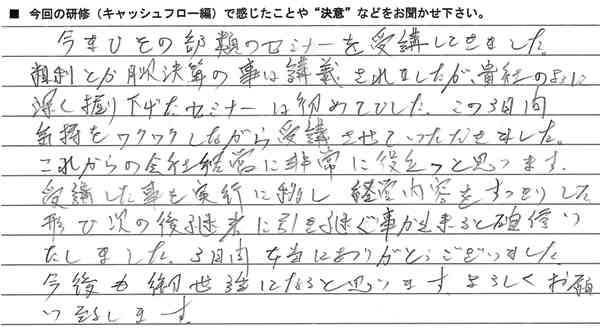 ■ 今回の研修（キャッシュフロー編）で感じたことや“決意”などをお聞かせ下さい。
今までその部類のセミナーを受講してきました。
粗利とか 決算の事は講義されましたが、貴社のように
深く掘り下げたセミナーは初めてでした。この3日間
気持をワクワクしながら受講させていただきました。
これからの会社経営に非常に役立つと思います。
受講した事を実行に移し 経営内容をすっきりした
形で次の後継者に引き継ぐ事が出来ると確信い
たしました。3日間本当にありがとうございました。
今後も御世話になると思います。よろしくお願
い致します。